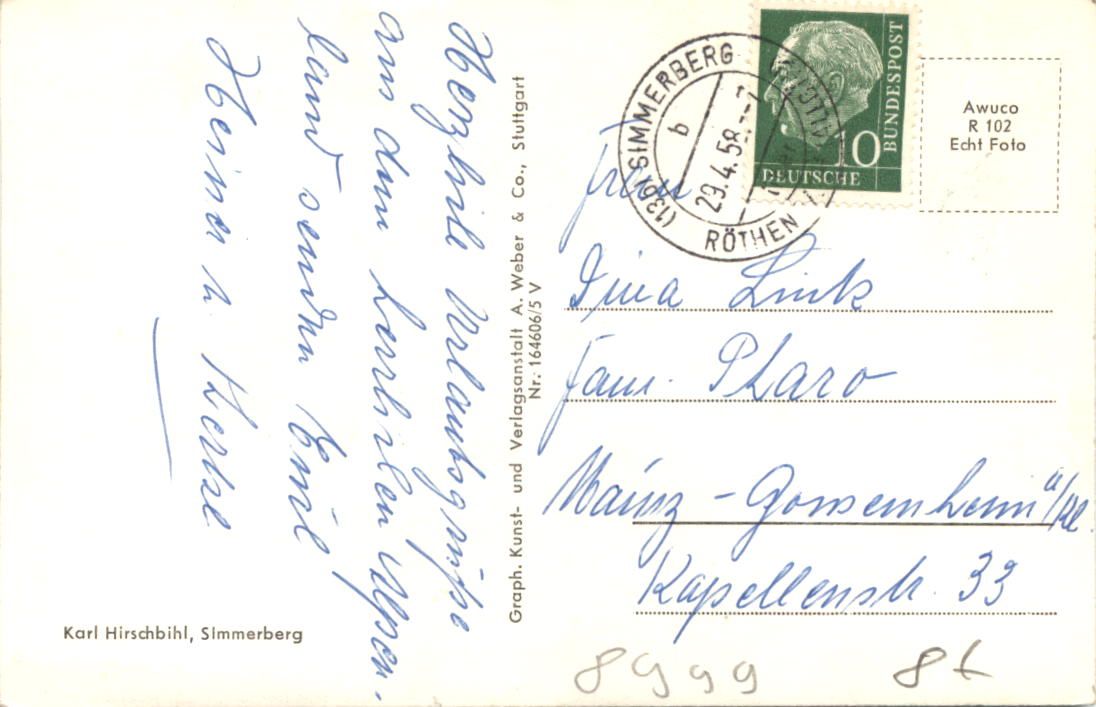 Herzliche Urlaubsgrüße
aus dem herrlichen Alpen-
land senden Emil
Heina u.
Graph. Kunst- und Verlagsanstalt A. Weber & Co., Stuttgart
Nr. 164606/5 V
Karl Hirschbihl, Simmerberg
(13b) SIMMERBERG
b
29.4.58
RÖTHEN
10
DEUTSCHE
BUNDESPOST
Awuco
R 102
Echt Foto
Frau
Dina Link
Fam. Pharo
Mainz - Gonsenheim a/Rh.
Kapellenstr. 33
8999